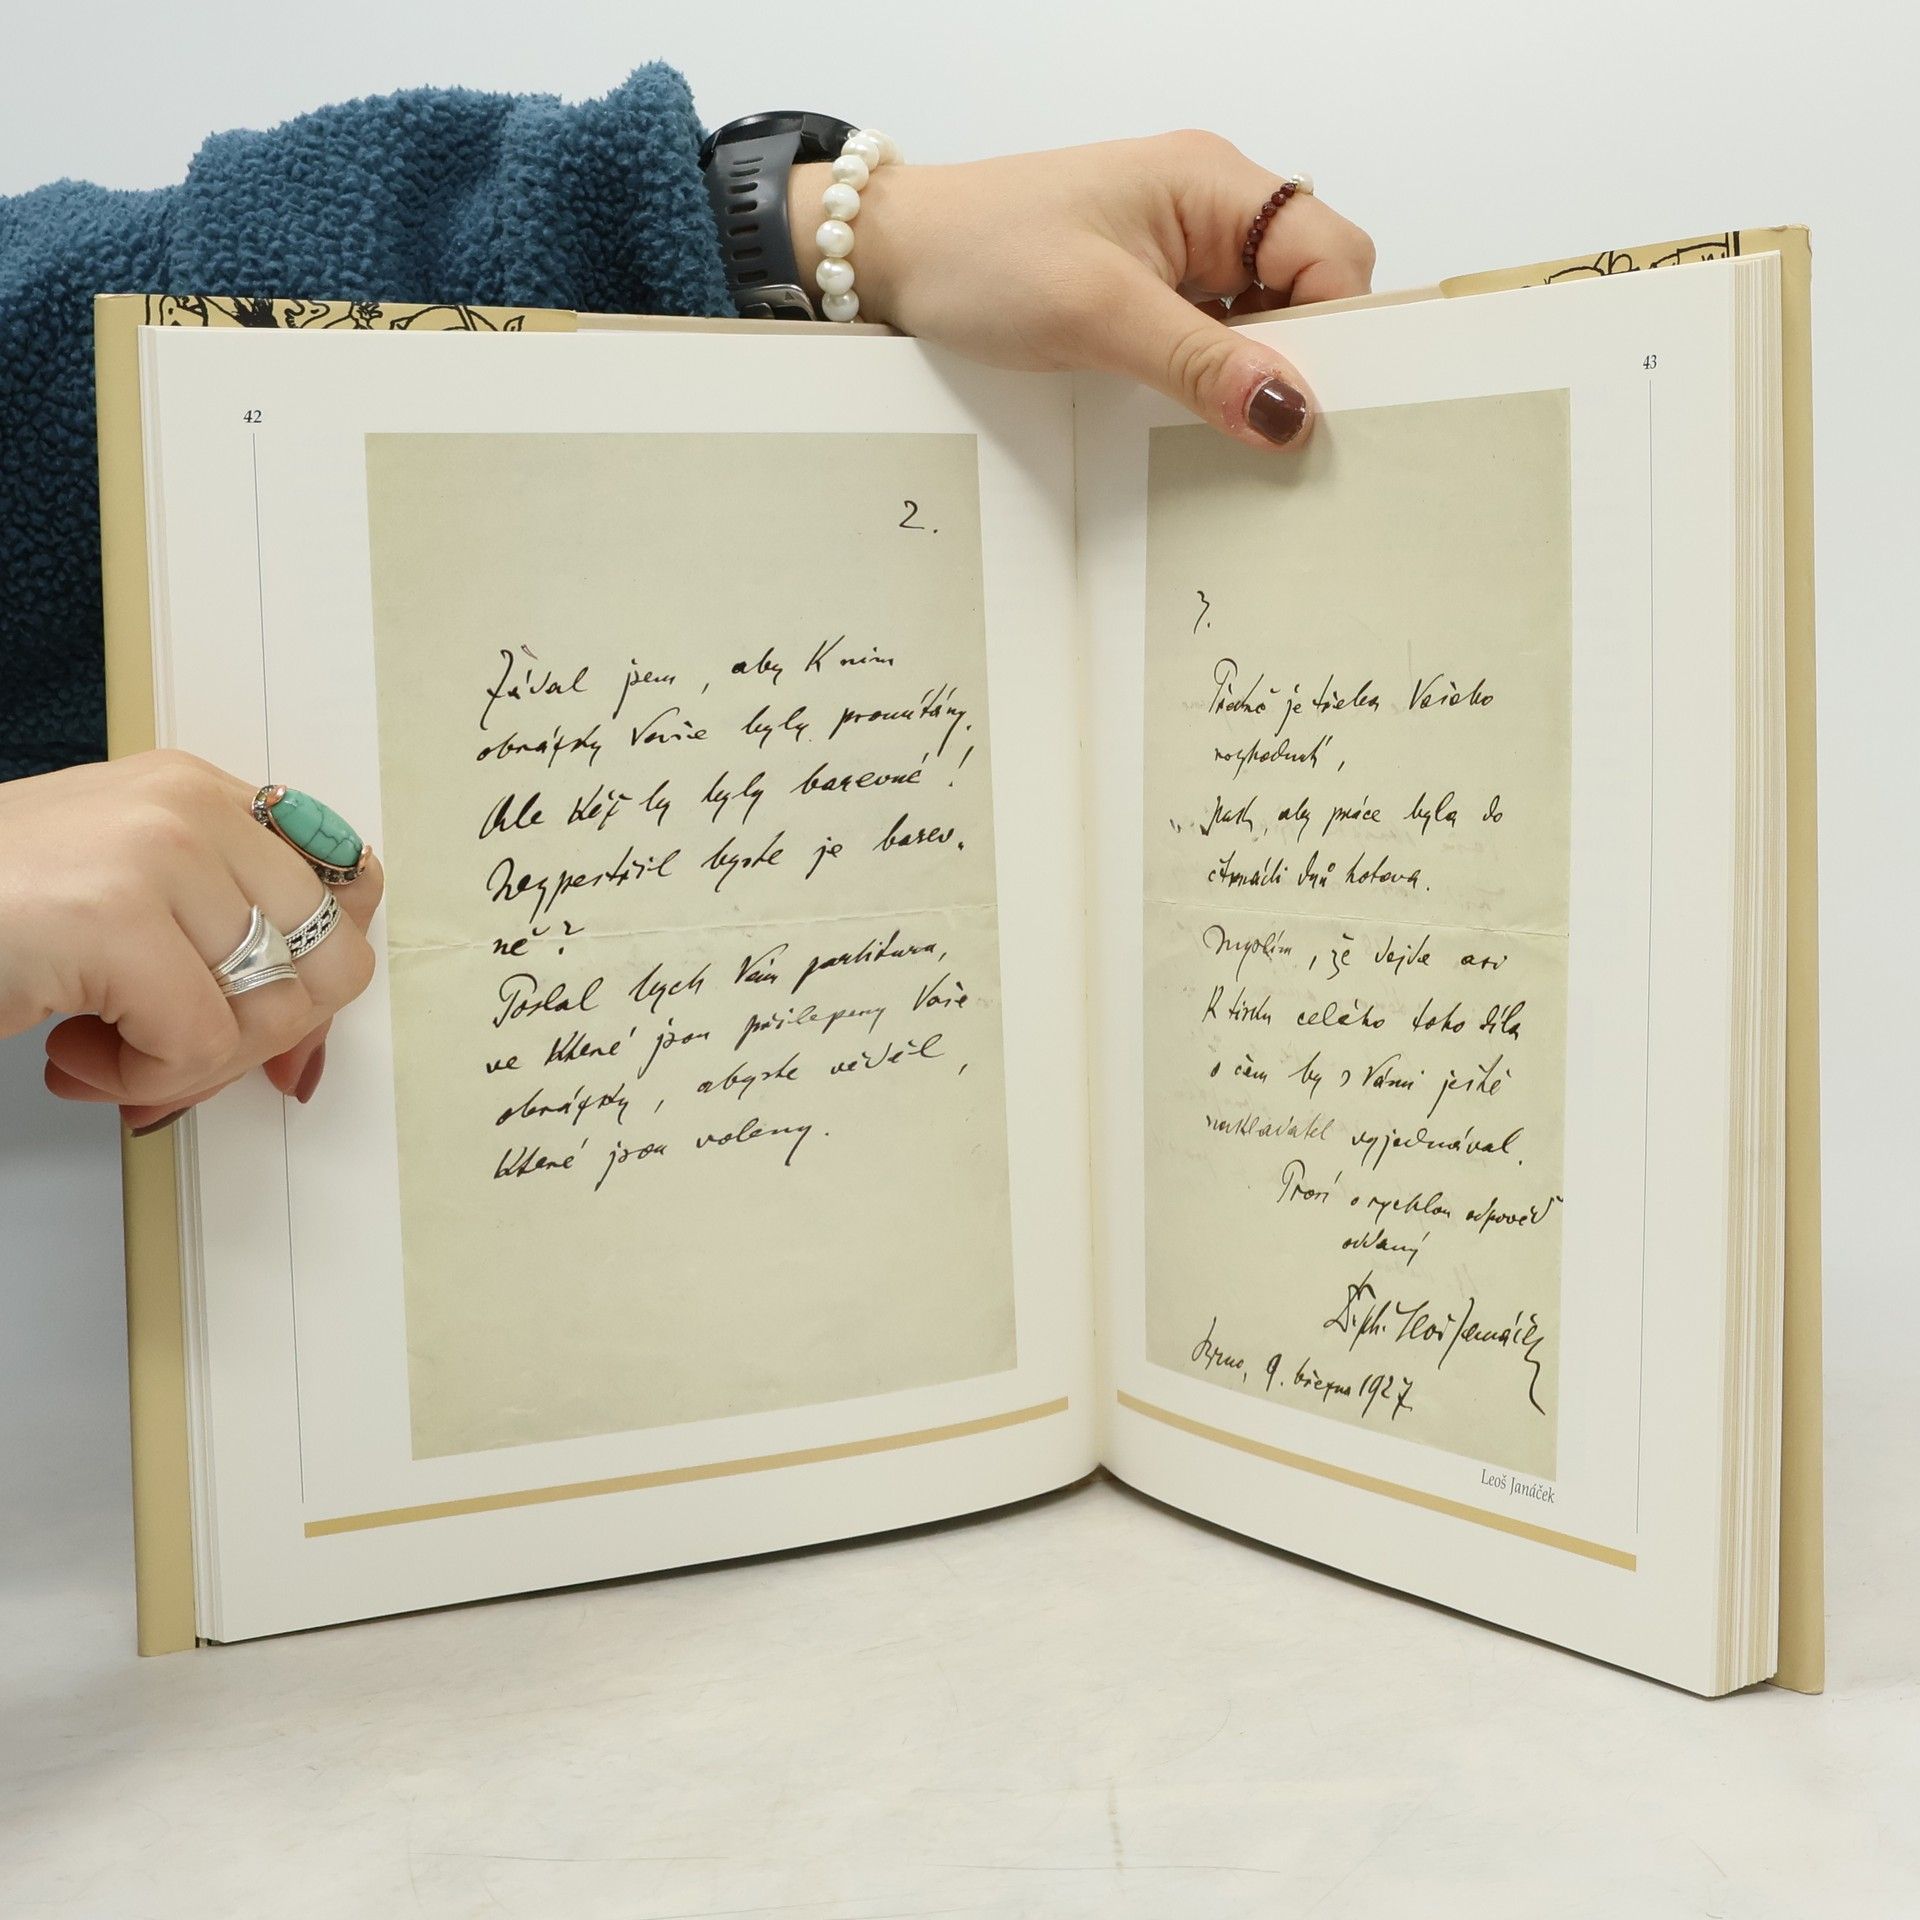 42
2.
Žádal jsem, aby k nim
obrázky Vaše byly promítány.
Ale kéž by byly barevné!
Nezpestřil byste je barev-
ně?
Poslal bych Vám partituru,
ve které jsou přilepeny Vaše
obrázky, abyste věděl,
které jsou voleny.
43
3.
Předně je třeba Vašeho
rozhodnutí,
pak, aby práce byla do
čtrnácti dnů hotova.
Myslím, že dojde asi
k tisku celého toho díla
o čem by s Vámi ještě
nakladatel vyjednával.
Prosí o rychlou odpověď
oddaný
Dr. ph. Leoš Janáček
Brno, 9. března 1927
Leoš Janáček